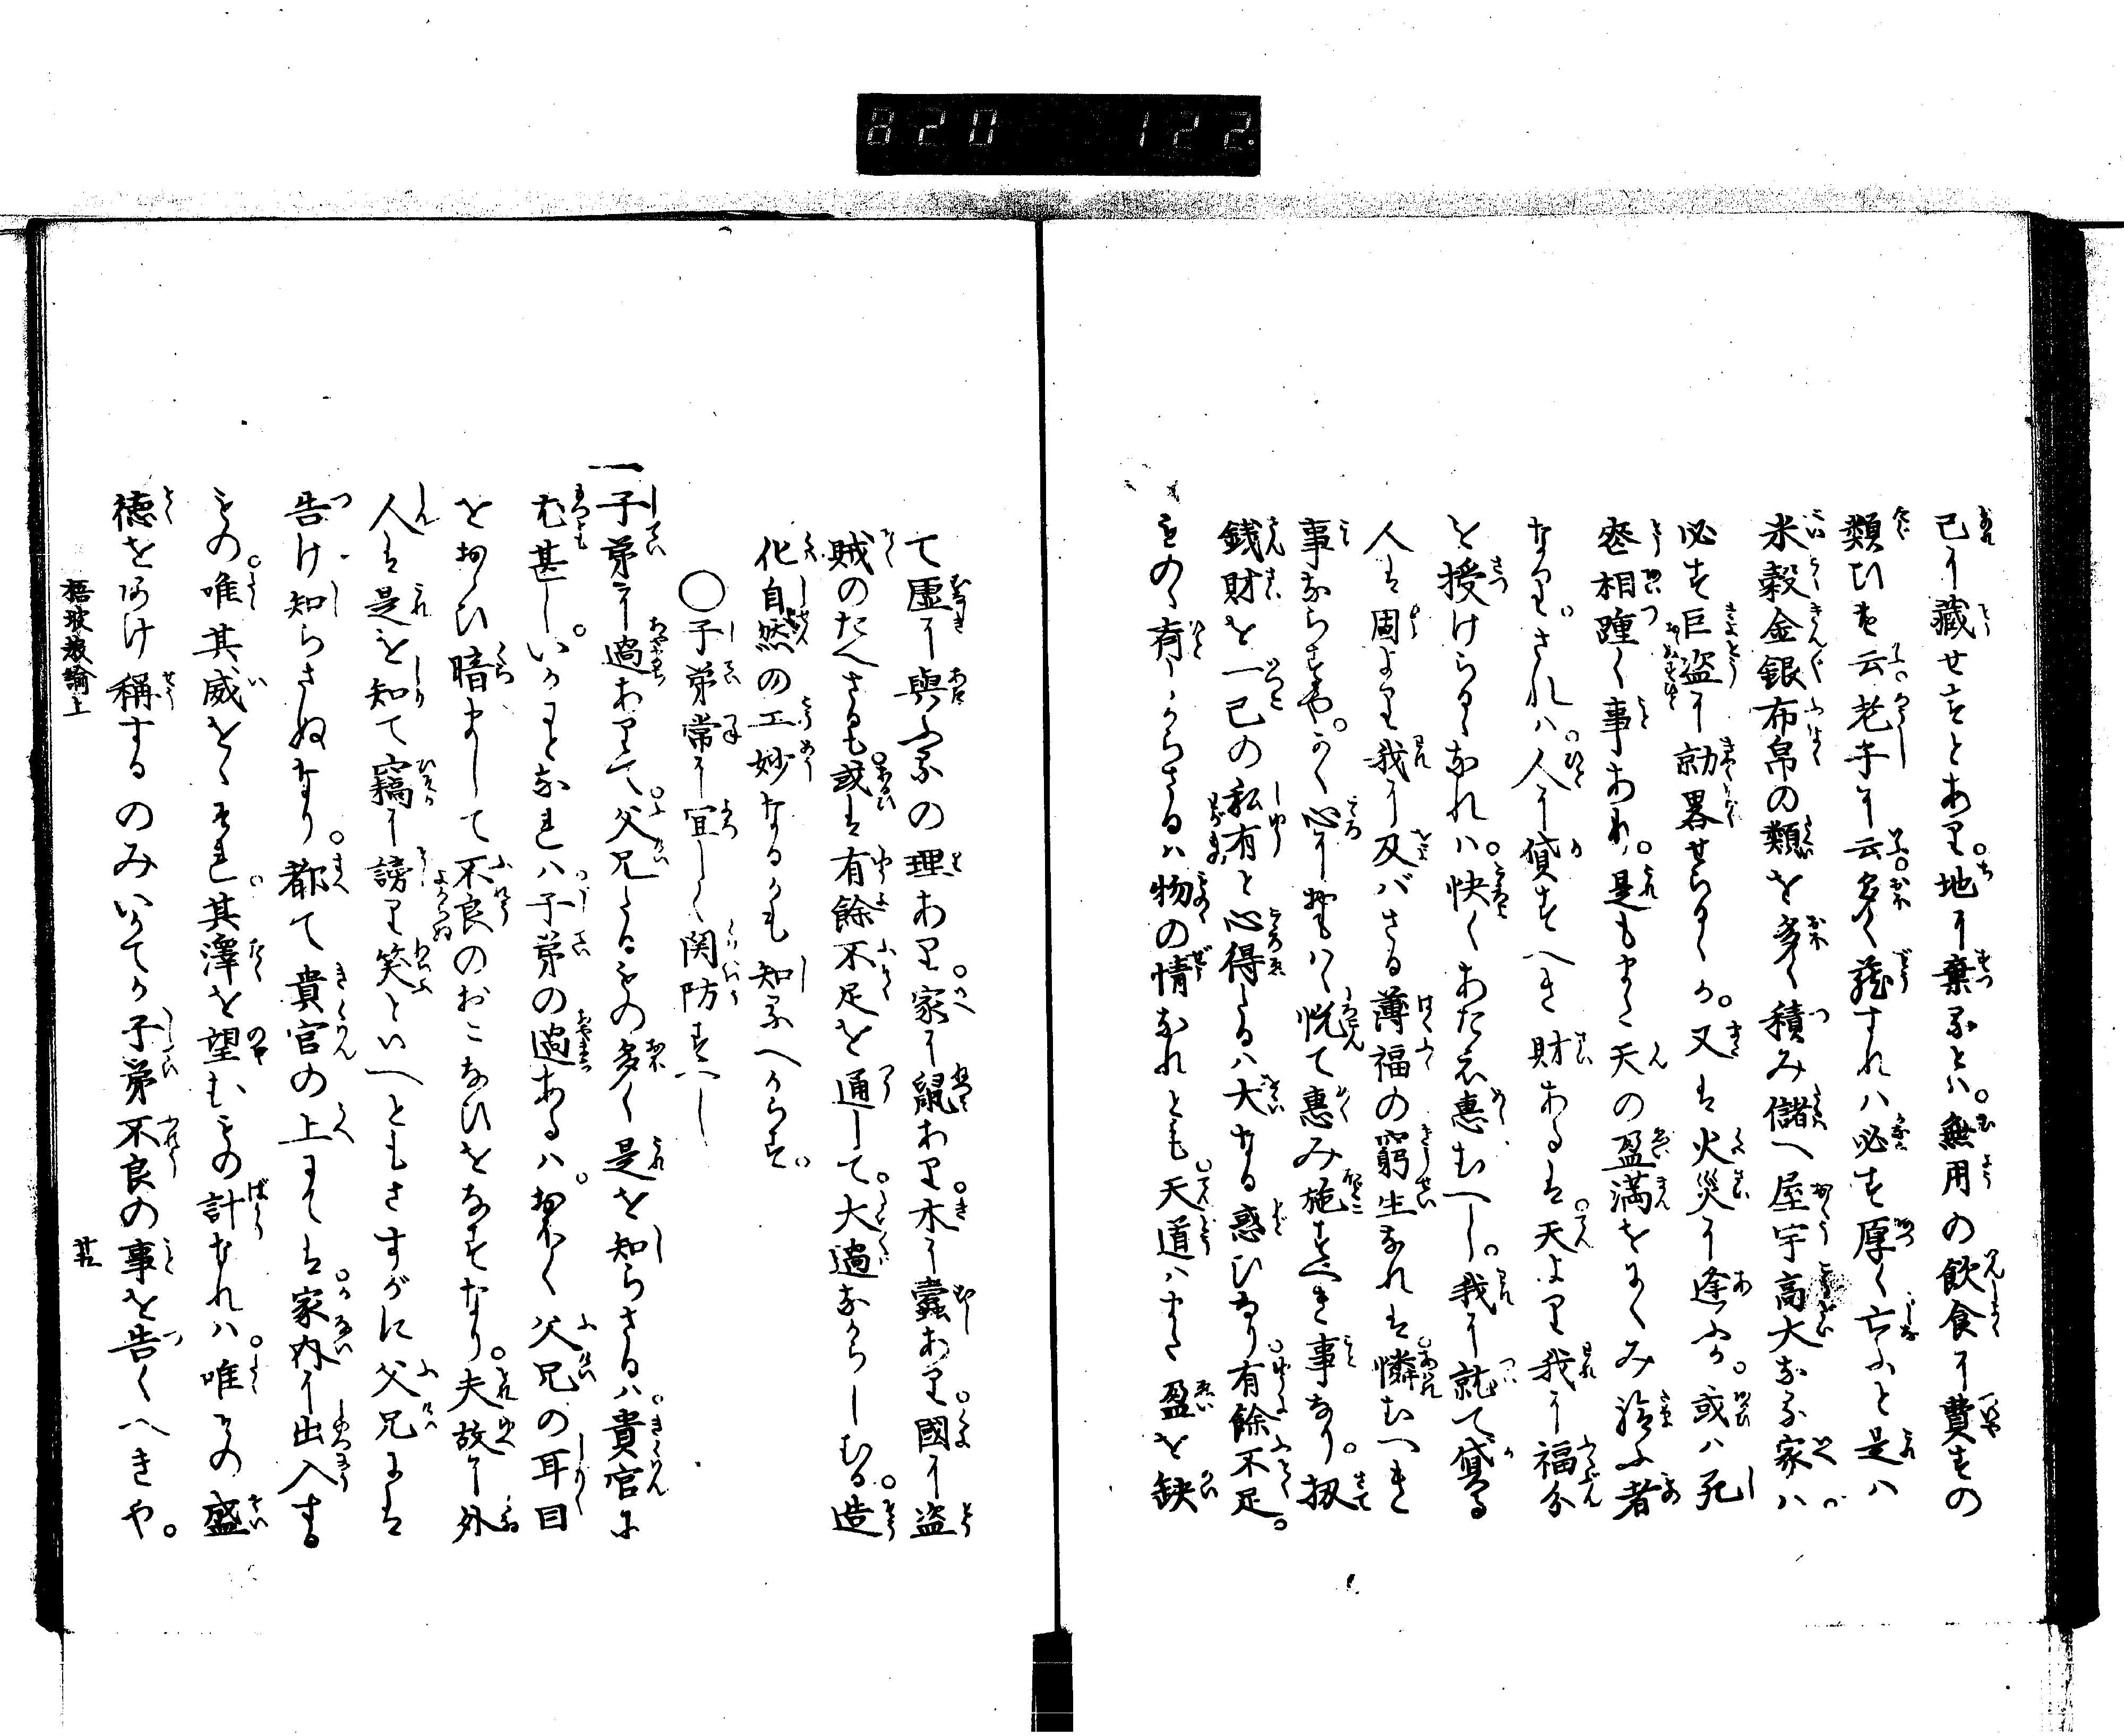 820 122
己に藏せすとあり。地に棄るとハ。無用の飲食に費すの
類ひを云老子に云多く藏すれハ必す厚く亡ふと是ハ
米穀金銀布帛の類を多く積み儲へ屋宇高大なる家ハ
必す巨盗に劫畧せらるゝか。又は火災に逢ふか。或ハ死
喪相踵く事あり。是もまた天の盈満をにくみ給ふ者
なり。されハ。人に貸すへき財あるは。天より我に福分
を授けらるゝなれハ。快くあたえ惠むへし。我に就て貸る
人は固より我に及バさる薄福の窮生なれは。憐むへき
事ならすや。かく心に思ひ悦て惠み施すへき事なり。扨
銭財を一己の私有と心得たるハ大なる惑ひなり。有餘不足。
ものゝ有ゝからさるハ物の情なれとも。天道ハまた盈を缺
て虚に與ふるの理あり。家に鼠あり。木に蠧あり。國に盗
賊のたへさるも。或は有餘不足を通して。大過なからしむる。造
化自然の工妙なるかも知るへからす。
〇子弟常に宜しく関防すへし
一子弟に過ありて。父兄たるもの多く是を知らさるハ。貴官に
尤甚し。いかんとなれハ。子弟の過あるハ。多く父兄の耳目
をおほひ暗まして不良のおこなひをなすなり。夫故に外
人は是を知て竊に謗り笑といへともさすがに父兄には
告け知らさぬなり。都て貴官の上にては。家内に出入する
もの。唯其威をゝそれ。其澤を望むもの計なれハ。唯その盛
徳をほめ稱するのみいかてか子弟不良の事を告くへきや。